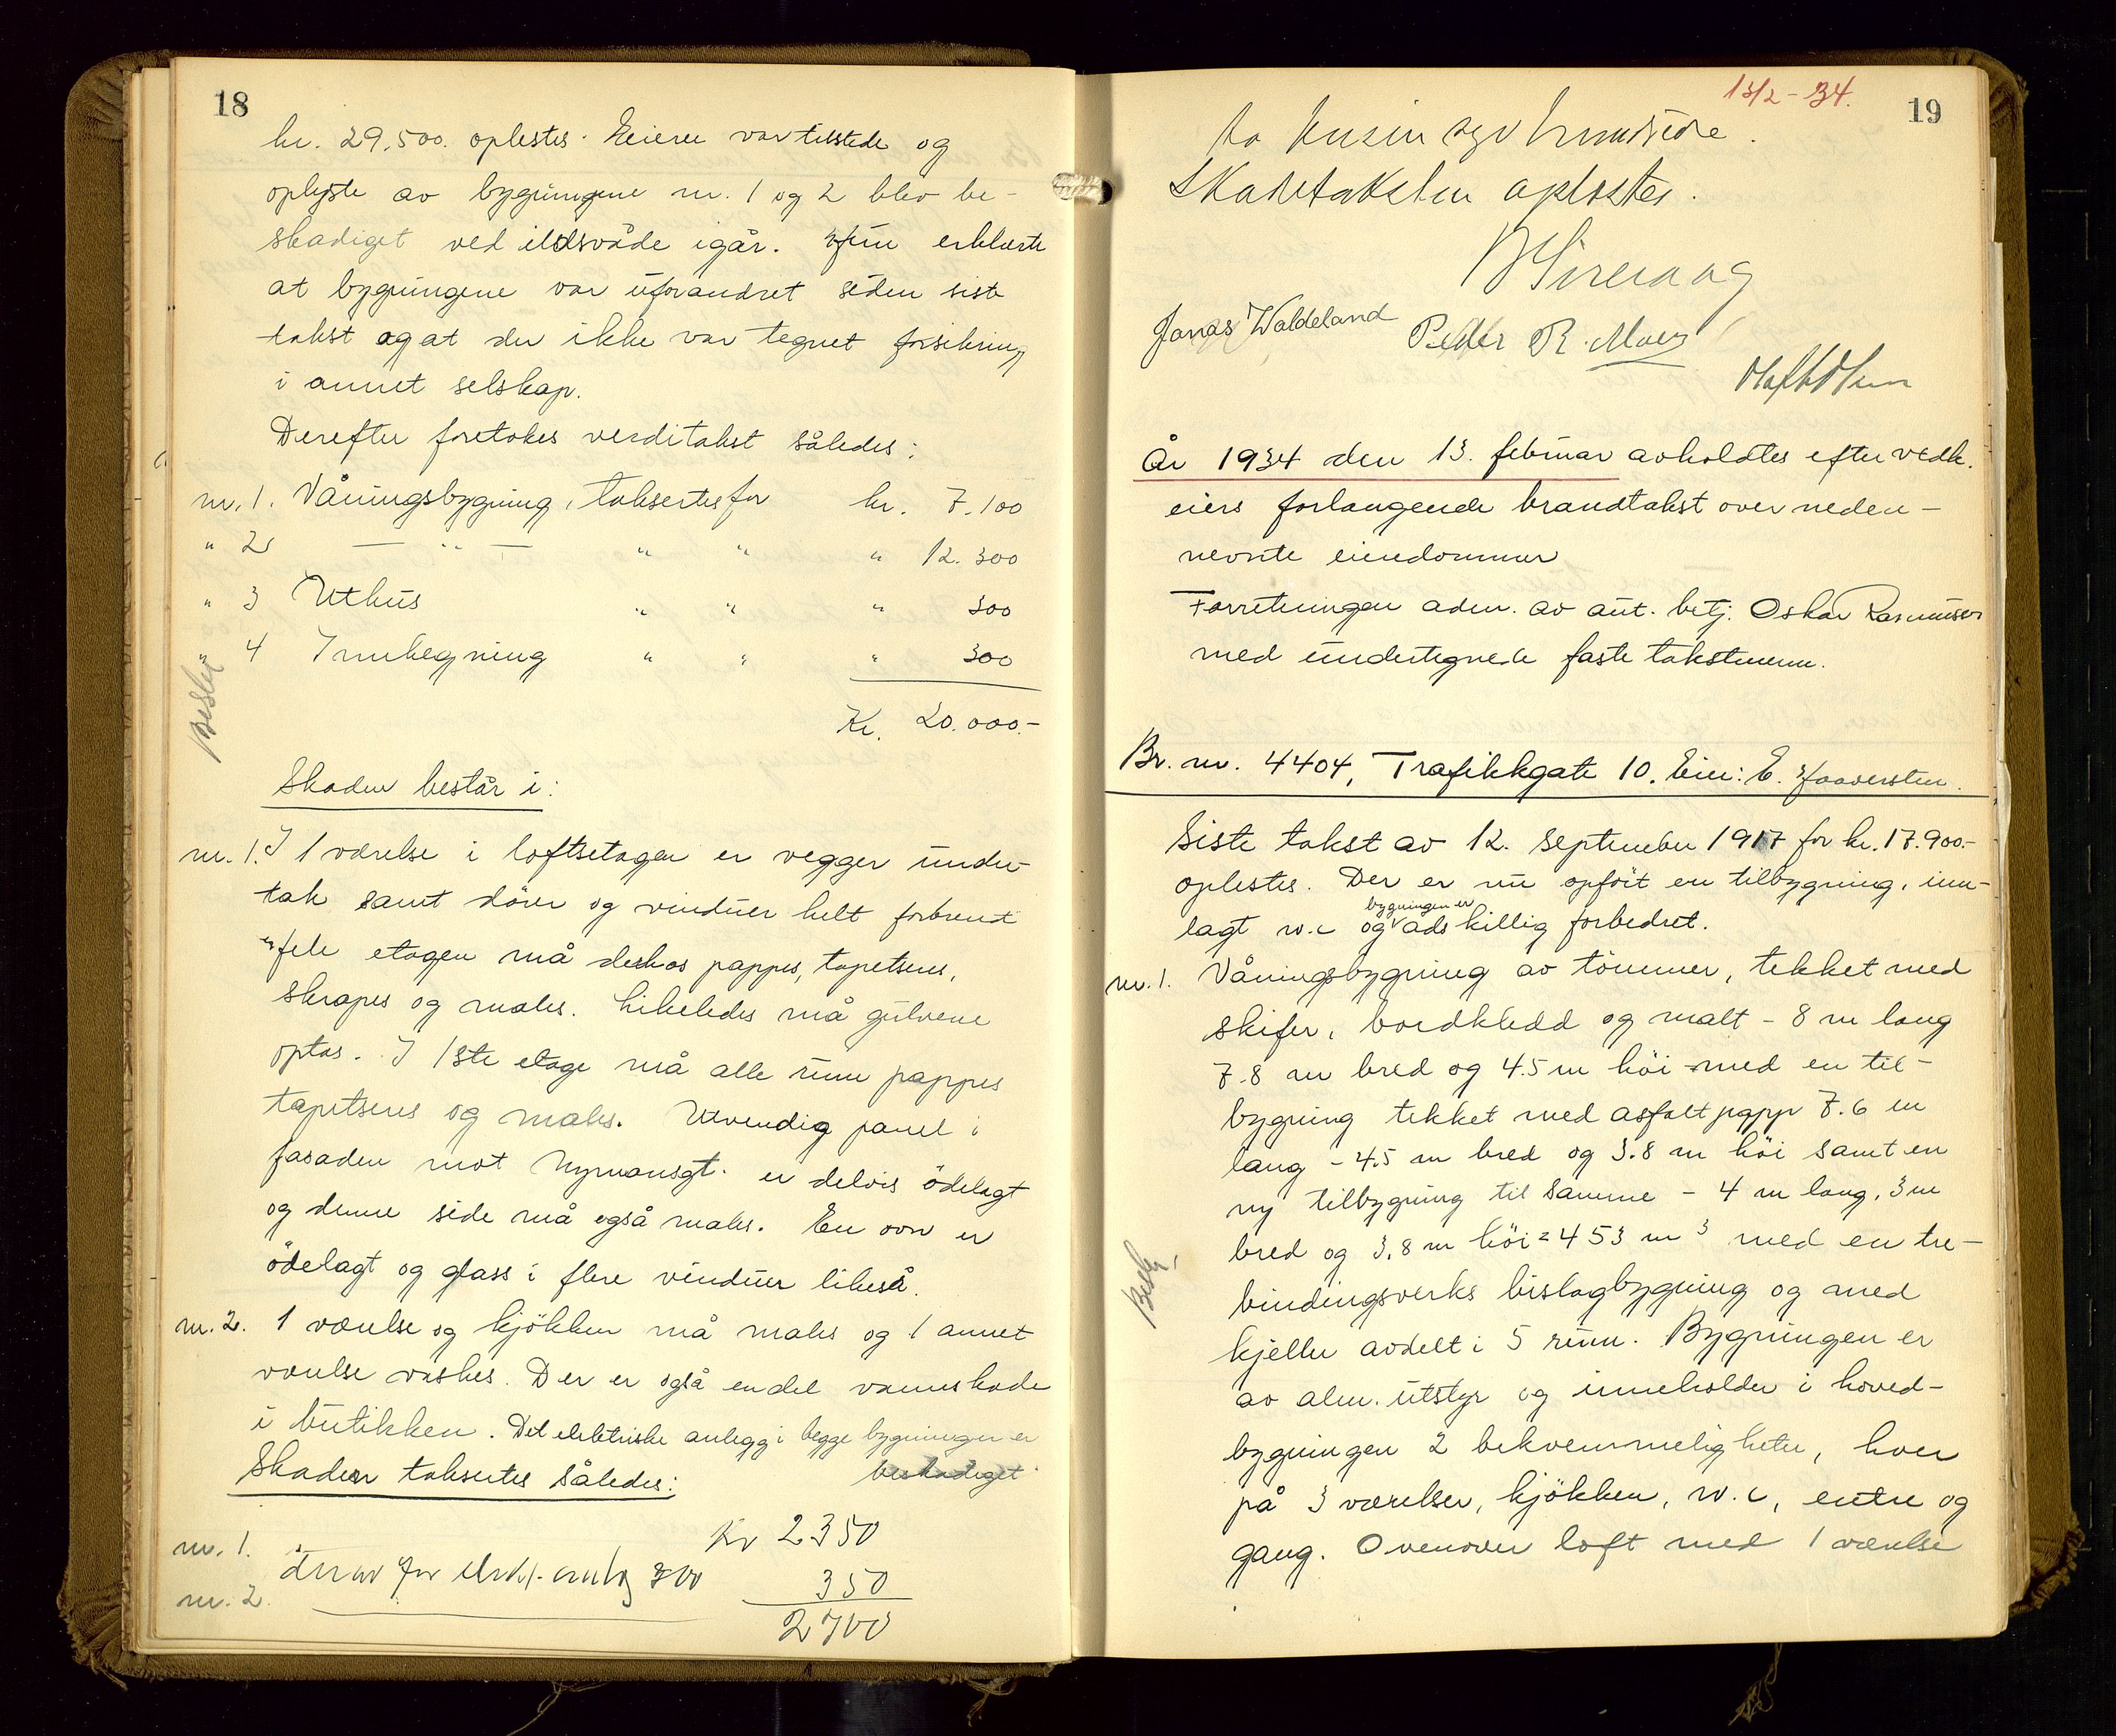 18
kr. 29.500. oplestes. Eieren var tilstede og
oplyste av bygningene nr. 1 og 2 blev be-
skadiget ved ildsvåde igår. Hun erklærte
at bygningene var uforandret siden siste
takst og at der ikke var tegnet forsikring
i annet selskap.
Derefter foretokes verditakst således:
nr. 1. Våningsbygning, taksertes for kr. 7.100
" 2 — " — " " " 12.300
" 3 Uthus " " " 300
" 4 Innhegning " " " 300
Kr. 20.000.-
Beskr
Skaden består i:
nr. 1. I 1 værelse i loftsetagen er vegger under-
tak samt dörer og vinduer helt forbrent
hele etagen må deshos pappes, tapetseres,
skrapes og males. Likeledes må gulvene
optas. I 1ste etage må alle rum pappes
tapetseres og males. Utvendig panel i
fasaden mot Nymansgt. er delvis ödelagt
og denne side må også males. En ovn er
ödelagt og glass i flere vinduer likeså.
nr. 2. 1 værelse og kjökken må males og 1 annet
værelse vaskes. Der er også endel vannskade
i butikken. Det elektriske anlegg i begge bygninger er
beskadiget
Skaden taksertes således:
nr. 1. Kr 2350
derav for elektr. anlegg 300
nr. 2. 350
2700
13/2-34.
19
Skadetaksten oplestes.
Jonas Waldeland Peder R. Moey
År 1934 den 13. februar avholdtes efter vedk.
eiers forlangende brandtakst over neden-
nevnte eiendommer
Forretningen adm. av aut. betj. Oskar Rasmussen
med undertegnede faste takstmenn.
Br. nr. 4404, Trafikkgate 10. Eier: E. Haaversten.
Siste takst av 12. september 1917 for kr. 17.900.-
oplestes. Der er nu opfört en tilbygning, inn-
bygningen er
lagt w.c og adskillig forbedret.
nr. 1. Våningsbygning av tömmer, tekket med
skifer, bordkledd og malt - 8 m lang
7.8 m bred og 4.5 m höi med en til-
bygning tekket med asfaltpapp 7.6 m
lang - 4.5 m bred og 3.8 m höi samt en
ny tilbygning til samme - 4 m lang, 3 m
bred og 3.8 m höi = 453 m3 med en tre-
Beskr
bindingsverks bislagbygning og med
kjeller avdelt i 5 rum. Bygningen er
av alm. utstyr og inneholder i hoved-
bygningen 2 bekvemmeligheter, hver
på 3 værelser, kjökken, w.c, entre og
gang. Ovenover loft med 1 værelse